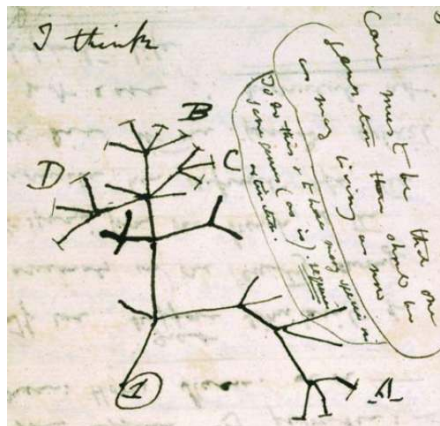 I think
Case must be that one
generation then should be
as many living as now
To do this & to have many species in
same genus (as is). requires
extinction.
B
D
C
1
A